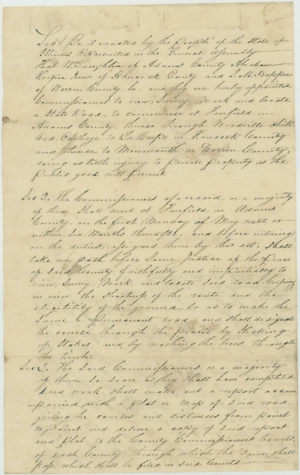 Sec 1 Be it enacted by the People of the State of
Illinois Represented in the General Assembly
That Wm Laughlin of Adams County Abraham
of Hancock County and
of Warren County be and they are hereby appointed
Commissioners to view, Survey, Mark and locate
a State Road, to commence at Fairfield in
Adams County, thence through Woodville
Carthage to La Harpe in Hancock County
and thence to Monmouth in Warren County,
doing as little injury to Private Property as the
Public good will permit
Sec 2. The Commissioners aforesaid or a majority
of them Shall meet at Fairfield in Adams
County on the first Monday of May next or
within Six Months thereafter, and before entering
on the duties assigned them by this act, Shall
take an oath before Some Justice of the Peace
of Said County faithfully and impartially to
view, Survey Mark, and locate Said road keeping
in view the Shortness of the route and the
eligibility of the ground So as to make the
Same a permanent road, and Shall designate
the course through the prairie by Sticking
of Stakes and by marking the trees through
the timber
Sec 3. The Said Commissioners or a majority
of them So Soon as they Shall have completed
Said work Shall make out a report accom
panied with a plat or Map of Said road,
giving the courses and distances from point
to point and deliver a copy of Said report
and Plat to the County Commissioners Courts
of each County through which the Same Shall
pass which Shall be filed in Said Courts